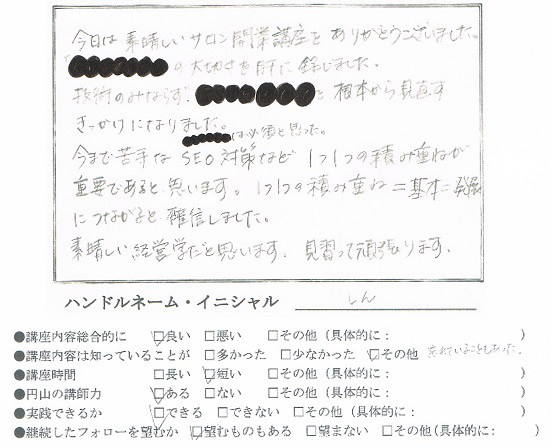 今日は素晴しいサロン開業講座をありがとうございました。
の大切さを肝に銘じました。
技術のみならず、と根本から見直す
きっかけになりました。
は必須と思った。
今まで苦手なSEO対策など1つ1つの積み重ねが
重要であると思います。1つ1つの積み重ね=基本=発展
につながると確信しました。
素晴しい経営学だと思います。見習って頑張ります。
ハンドルネーム・イニシャル しん
●講座内容総合的に □良い □悪い □その他（具体的に： ）
●講座内容は知っていることが □多かった □少なかった □その他 忘れていることもあった。
●講座時間 □長い □短い □その他（具体的に： ）
●円山の講師力 □ある □ない □その他（具体的に： ）
●実践できるか □できる □できない □その他（具体的に： ）
●継続したフォローを望むか □望むものもある □望まない □その他（具体的に： ）